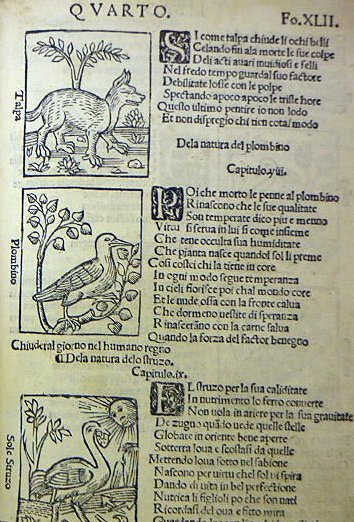 QVARTO.
Fo.XLII.
Talpa
SI come talpa chiude li ochi belli
Celando fin ala morte le sue colpe
Deli acti auari inuidiosi e felli
Nel fredo tempo guarda'l suo factore
Debilitate losse con le polpe
Spectando apoco apoco le triste hore
Questo ultimo pentire io non lodo
Et non dispregio chi tien cotal modo
Dela natura del plombino
Capitulo.viii.
Plombino
POi che morto le penne al plombino
Rinascono che le sue qualitate
Son temperate dico piu e menno
Virtu si serua in lui si come insieme
Che tene occulta sua humiditate
Che pianta nasce quando sol li preme
Cosi costei chi la tiene in core
In ogni modo segue temperanza
In cieli fiorisce poi chal mondo core
Et le nude ossa con la fronte calua
Che dormeno uestite di speranza
Rinascerano con la carne salua
Quando la forza del factor benegno
Chiudera'l giorno nel humano regno
Dela natura delo struzo.
Capitulo.ix.
Sole Struzo
EL struzo per la sua caliditate
In nutrimento lo ferro conuerte
Non uola in ariere per la sua grauitate
De zugno quãdo uede quelle stelle
Globate in oriente bene aperte
Sotterra loua e scostasi da quelle
Mettendo loua sotto nel sabione
Nascono per uirtu chel sol ui spira
Dando di uita in bel perfectione
Nutrica li figlioli po che son nati
Ricordasi del oua e fitto mira